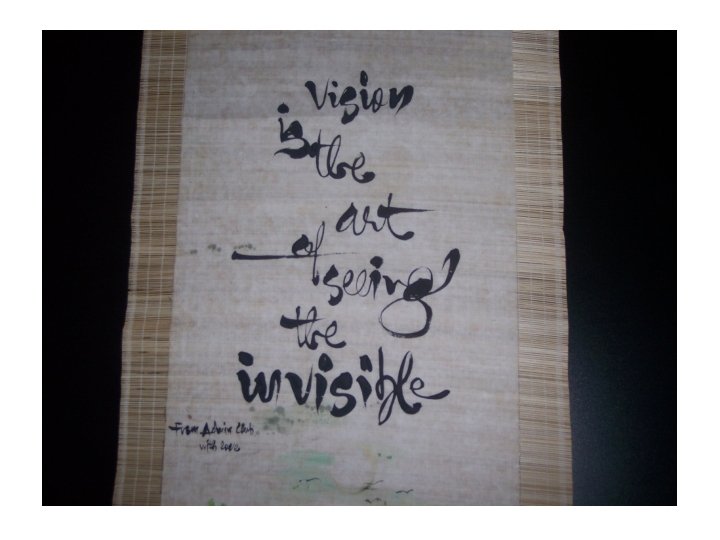 Vision
is
the
art
of
seeing
the
invisible
From Admin Club
with